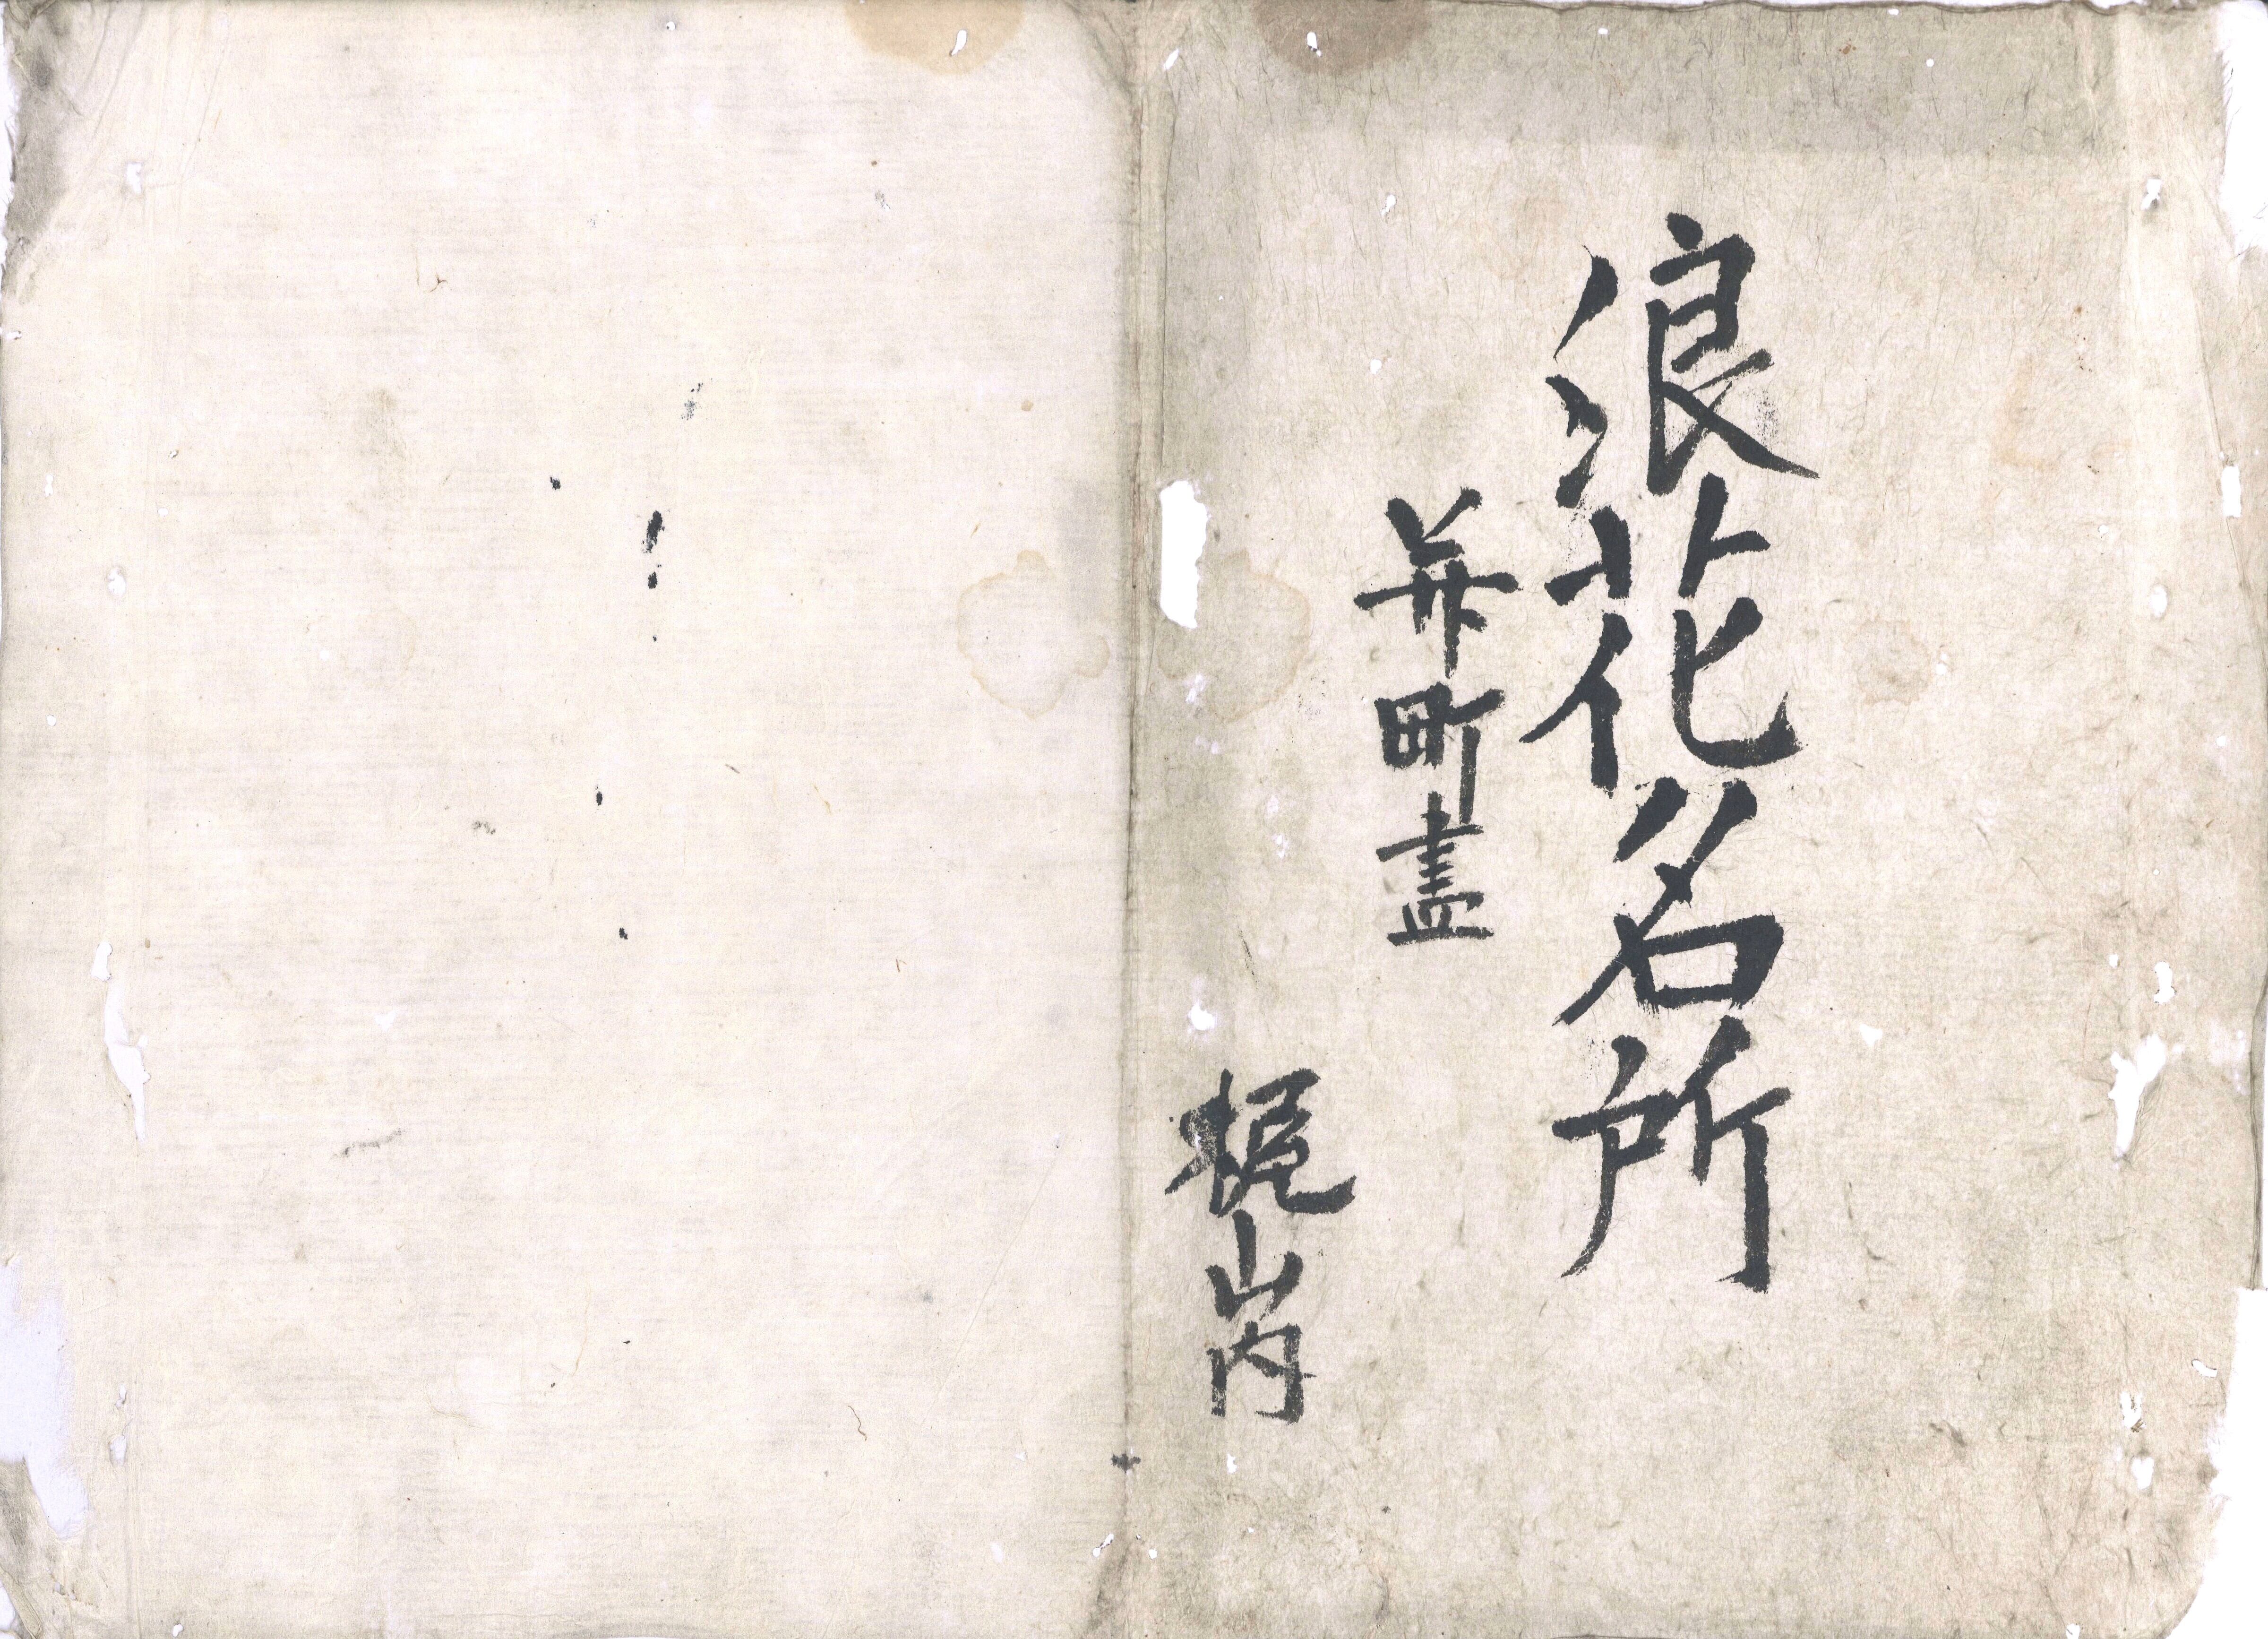 浪花名所
并町盡
梶山内